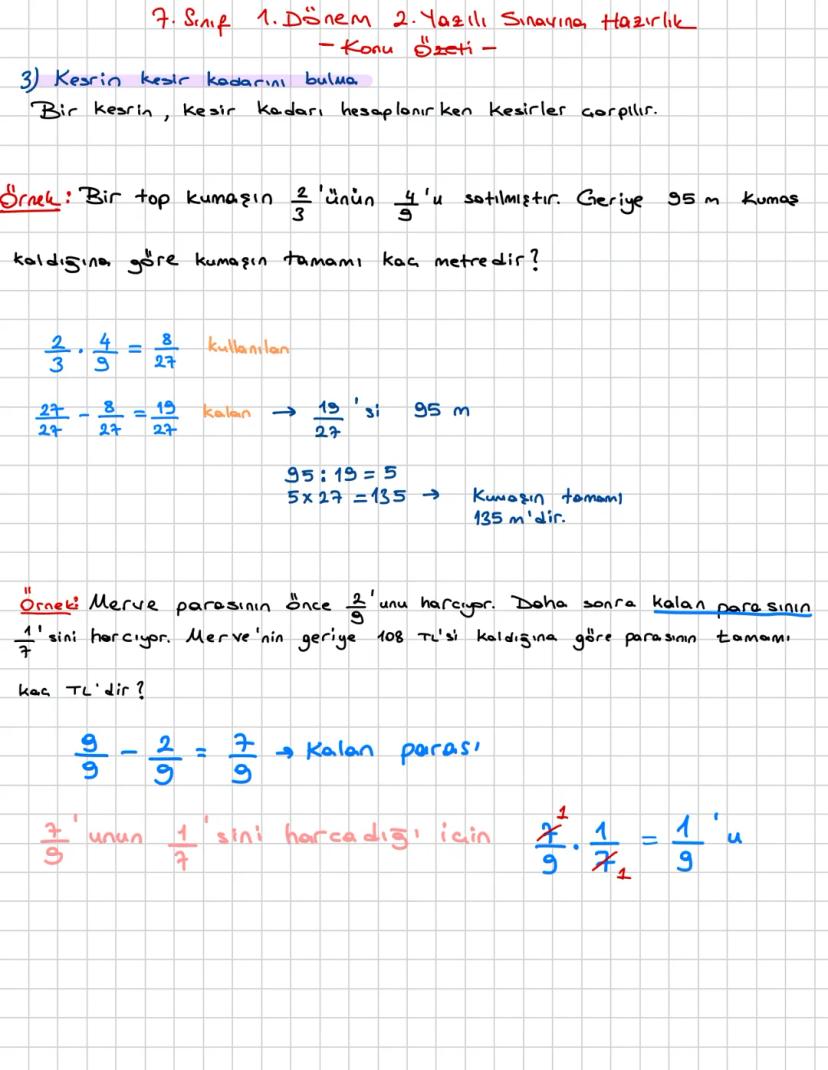 7. Sınıf 1. Dönem 2. Yazılı Sınavına Hazırlık
- Konu Özeti -
3) Kesrin kesir kadarını bulma
Bir kesrin, kesir kadarı hesaplanırken kesirler çarpılır.
Örnek: Bir top kumaşın 2/3 'ünün 4/9 'u satılmıştır. Geriye 95 m kumaş
kaldığına göre kumaşın tamamı kaç metredir?
2/3 . 4/9 = 8/27 kullanılan
27/27 - 8/27 = 19/27 kalan → 19/27 'si 95 m
95 : 19 = 5
5 x 27 = 135 → Kumaşın tamamı
135 m'dir.
Örnek: Merve parasının önce 2/9 'unu harcıyor. Daha sonra kalan parasının
1/7 'sini harcıyor. Merve'nin geriye 108 TL'si kaldığına göre parasının tamamı
kaç TL'dir?
9/9 - 2/9 = 7/9 → Kalan parası
7/9 'unun 1/7 'sini harcadığı için 7/9 . 1/7 = 1/9 'u
1
1